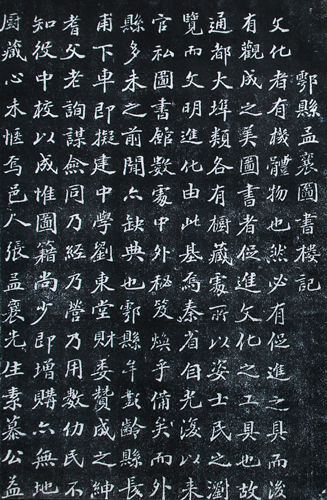 鄠縣孟襄圖書樓記
文化者有機體物也然必有促進之具而後
有觀成之美圖書者促進文化之工具也故
通都大埠類各有櫥藏處所以姿士民之瀏
覽而文明進化由此基焉秦省自光復以來
官私圖書館數處中外秘笈煥乎備矣而外
縣多未之前聞亦缺典也鄠縣牛齡縣長
甫下車即擬建中學劉東堂財委贊成之紳
耆父老詢謀僉同乃經乃營乃用數仂民不
知役中校以成惟圖籍尚少即增購亦無地
廚藏心未愜焉邑人張孟襄先生素慕公益